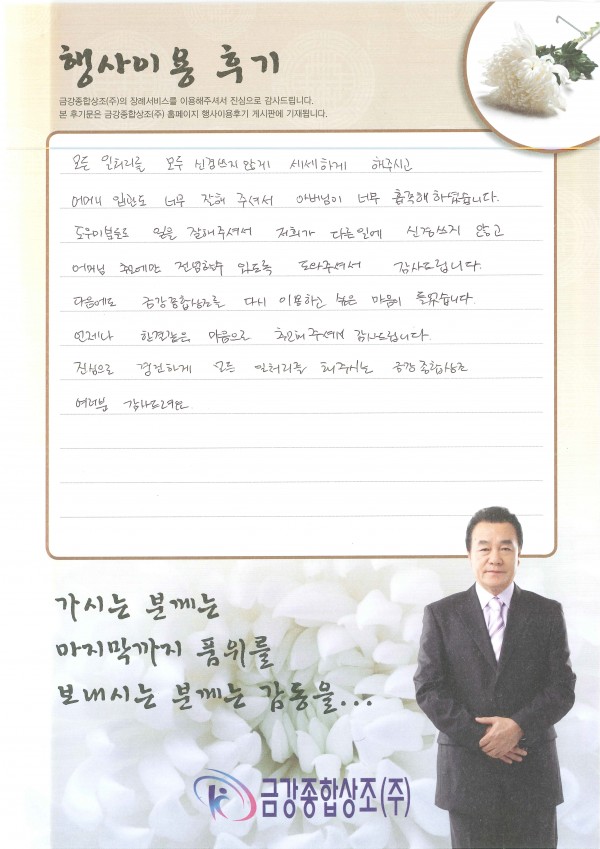 행사이용 후기
금강종합상조(주)의 장례서비스를 이용해주셔서 진심으로 감사드립니다.
본 후기문은 금강종합상조(주) 홈페이지 행사이용후기 게시판에 기재됩니다.
모든 일처리를 모두 신경쓰지 않게 세세하게 해주시고
어머니 입관도 너무 잘해 주셔서 아버님이 너무 흡족해 하셨습니다.
도우미분들도 일을 잘해주셔서 저희가 다른일에 신경쓰지 않고
어머님 추모에만 전념할수 있도록 도와주셔서 감사드립니다.
다음에도 금강종합상조를 다시 이용하고 싶은 마음이 들었습니다.
언제나 한결같은 마음으로 추모해주셔서 감사드립니다.
진심으로 경건하게 모든 일처리를 해주시는 금강종합상조
여러분 감사드려요
가시는 분께는
마지막까지 품위를
보내시는 분께는 감동을...
금강종합상조(주)